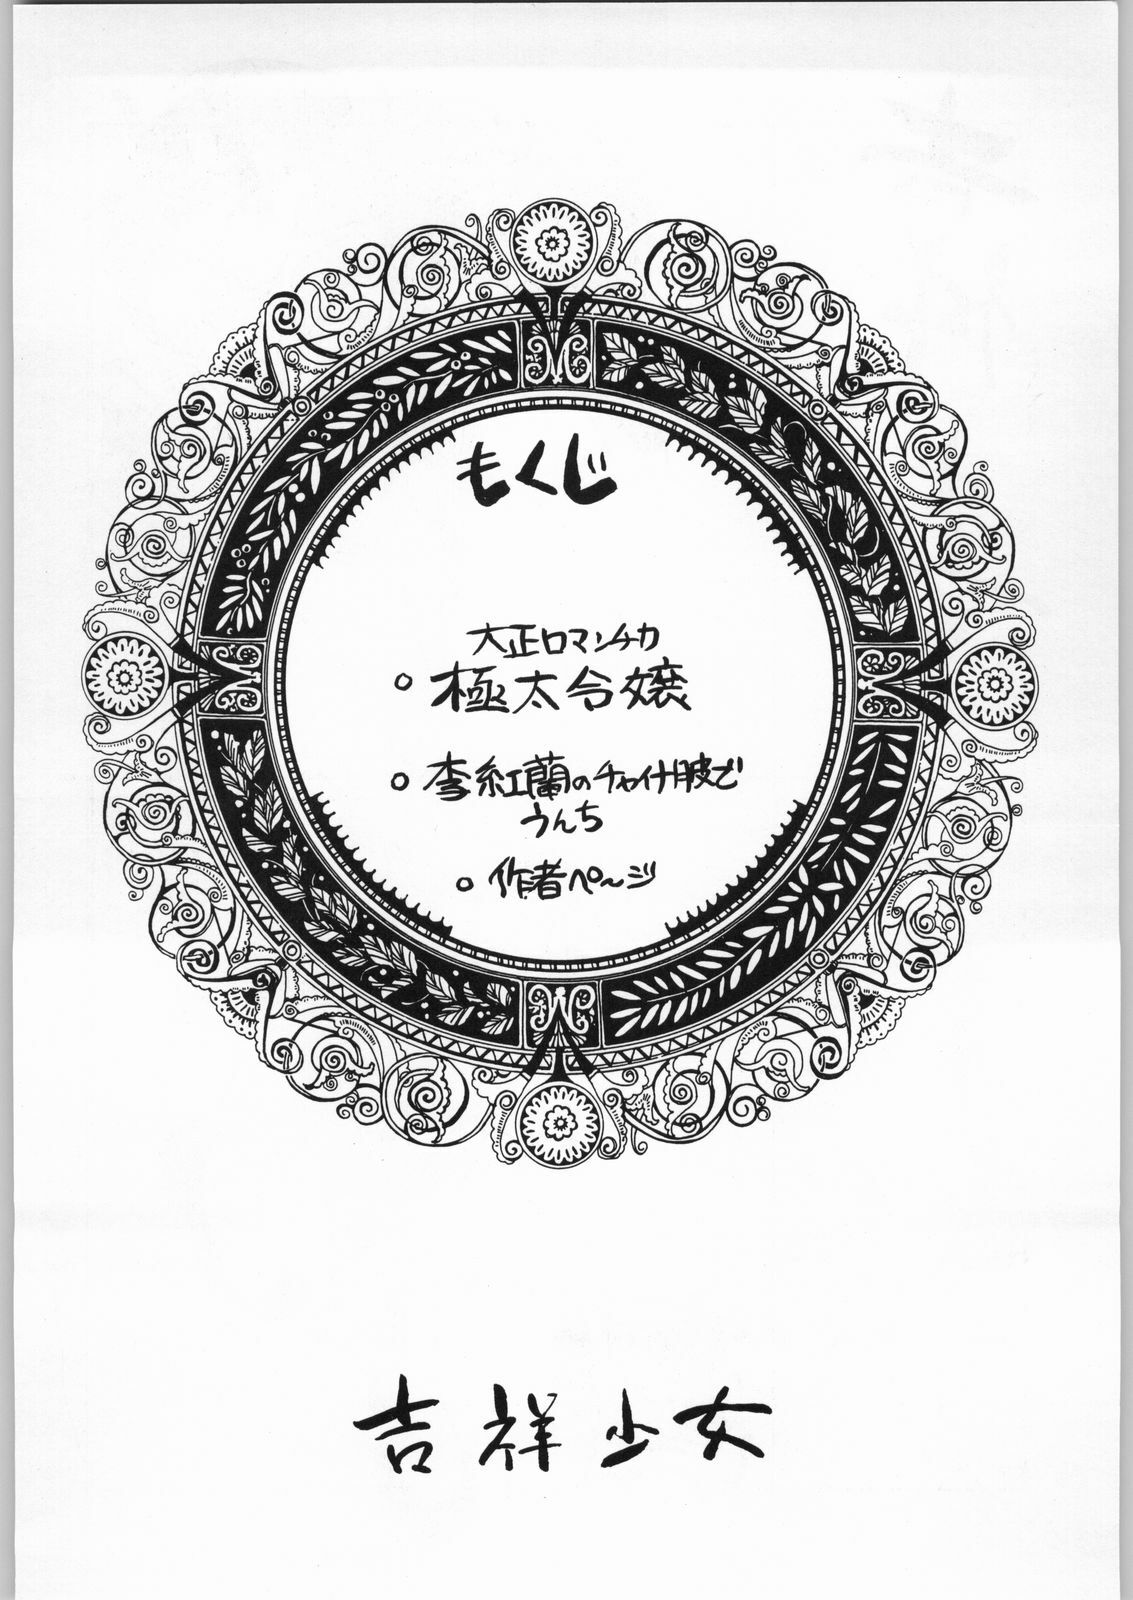 もくじ
大正ロマンチカ
○ 極太令嬢
○ 李紅蘭のチャイナ服で
うんち
○ 作者ページ
吉祥少女